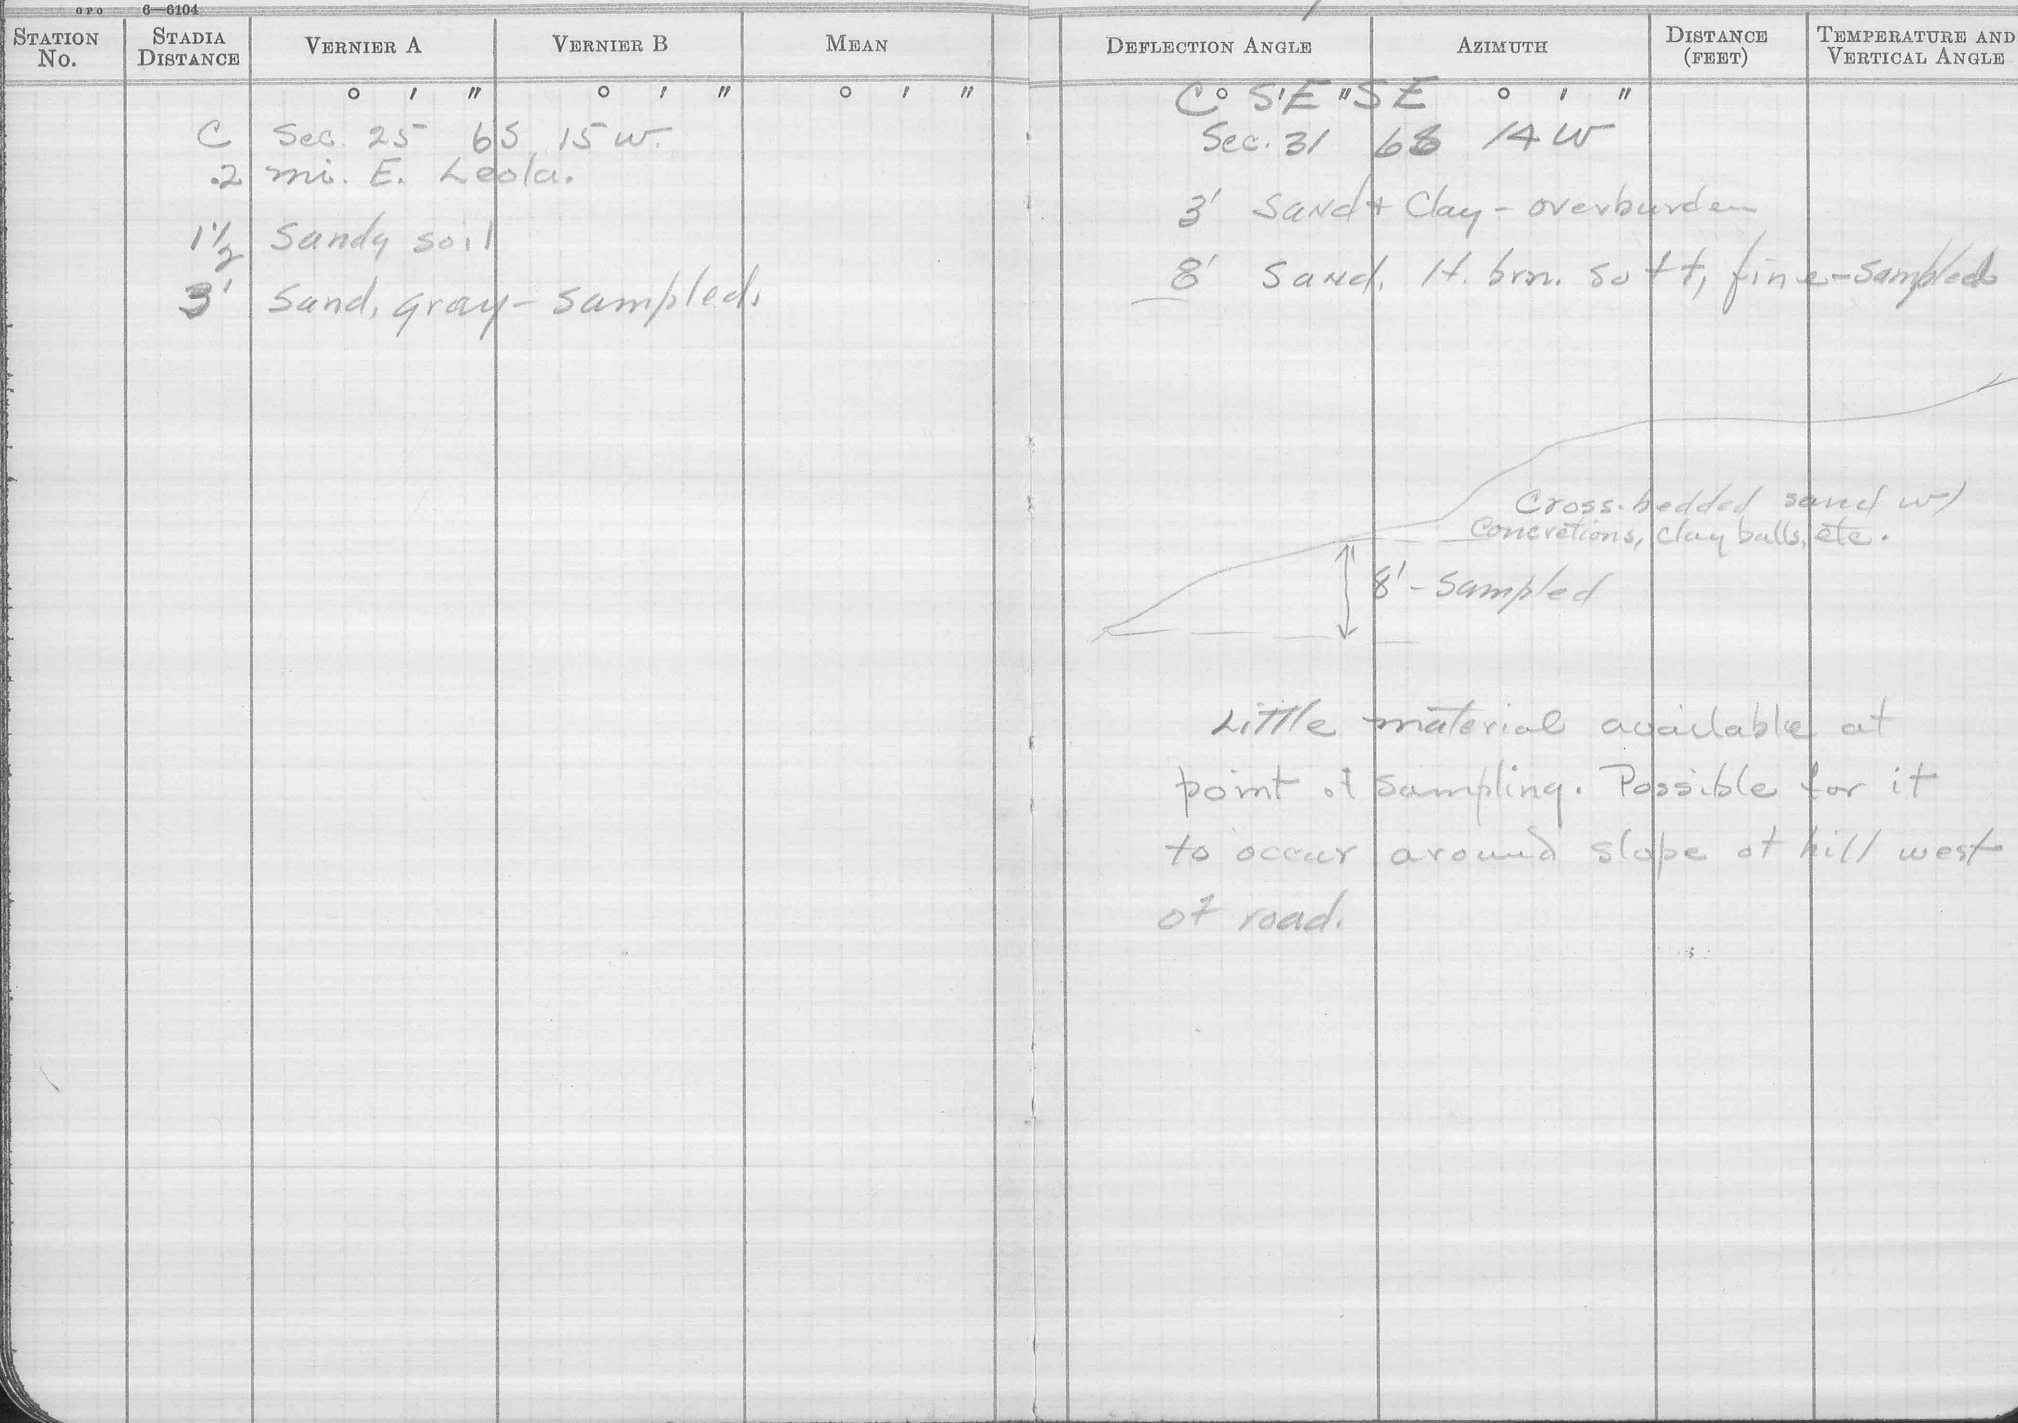 GPO 6—6104
STATION No. STADIA DISTANCE VERNIER A VERNIER B MEAN
° ′ ″ ° ′ ″ ° ′ ″
C Sec. 25 6S 15 W.
.2 mi. E. Leola.
1 1/2 Sandy soil
3' Sand, gray - sampled.
DEFLECTION ANGLE AZIMUTH DISTANCE (FEET) TEMPERATURE AND VERTICAL ANGLE
° ′ ″ ° ′ ″
C SE SE
Sec. 31 6S 14 W
3' Sand + Clay - overburden
8' Sand, lt. brn. soft, fine - sampled
Cross-bedded sand w/
Concretions, clay balls, etc.
8' - sampled
Little material available at
point of sampling. Possible for it
to occur around slope of hill west
of road.